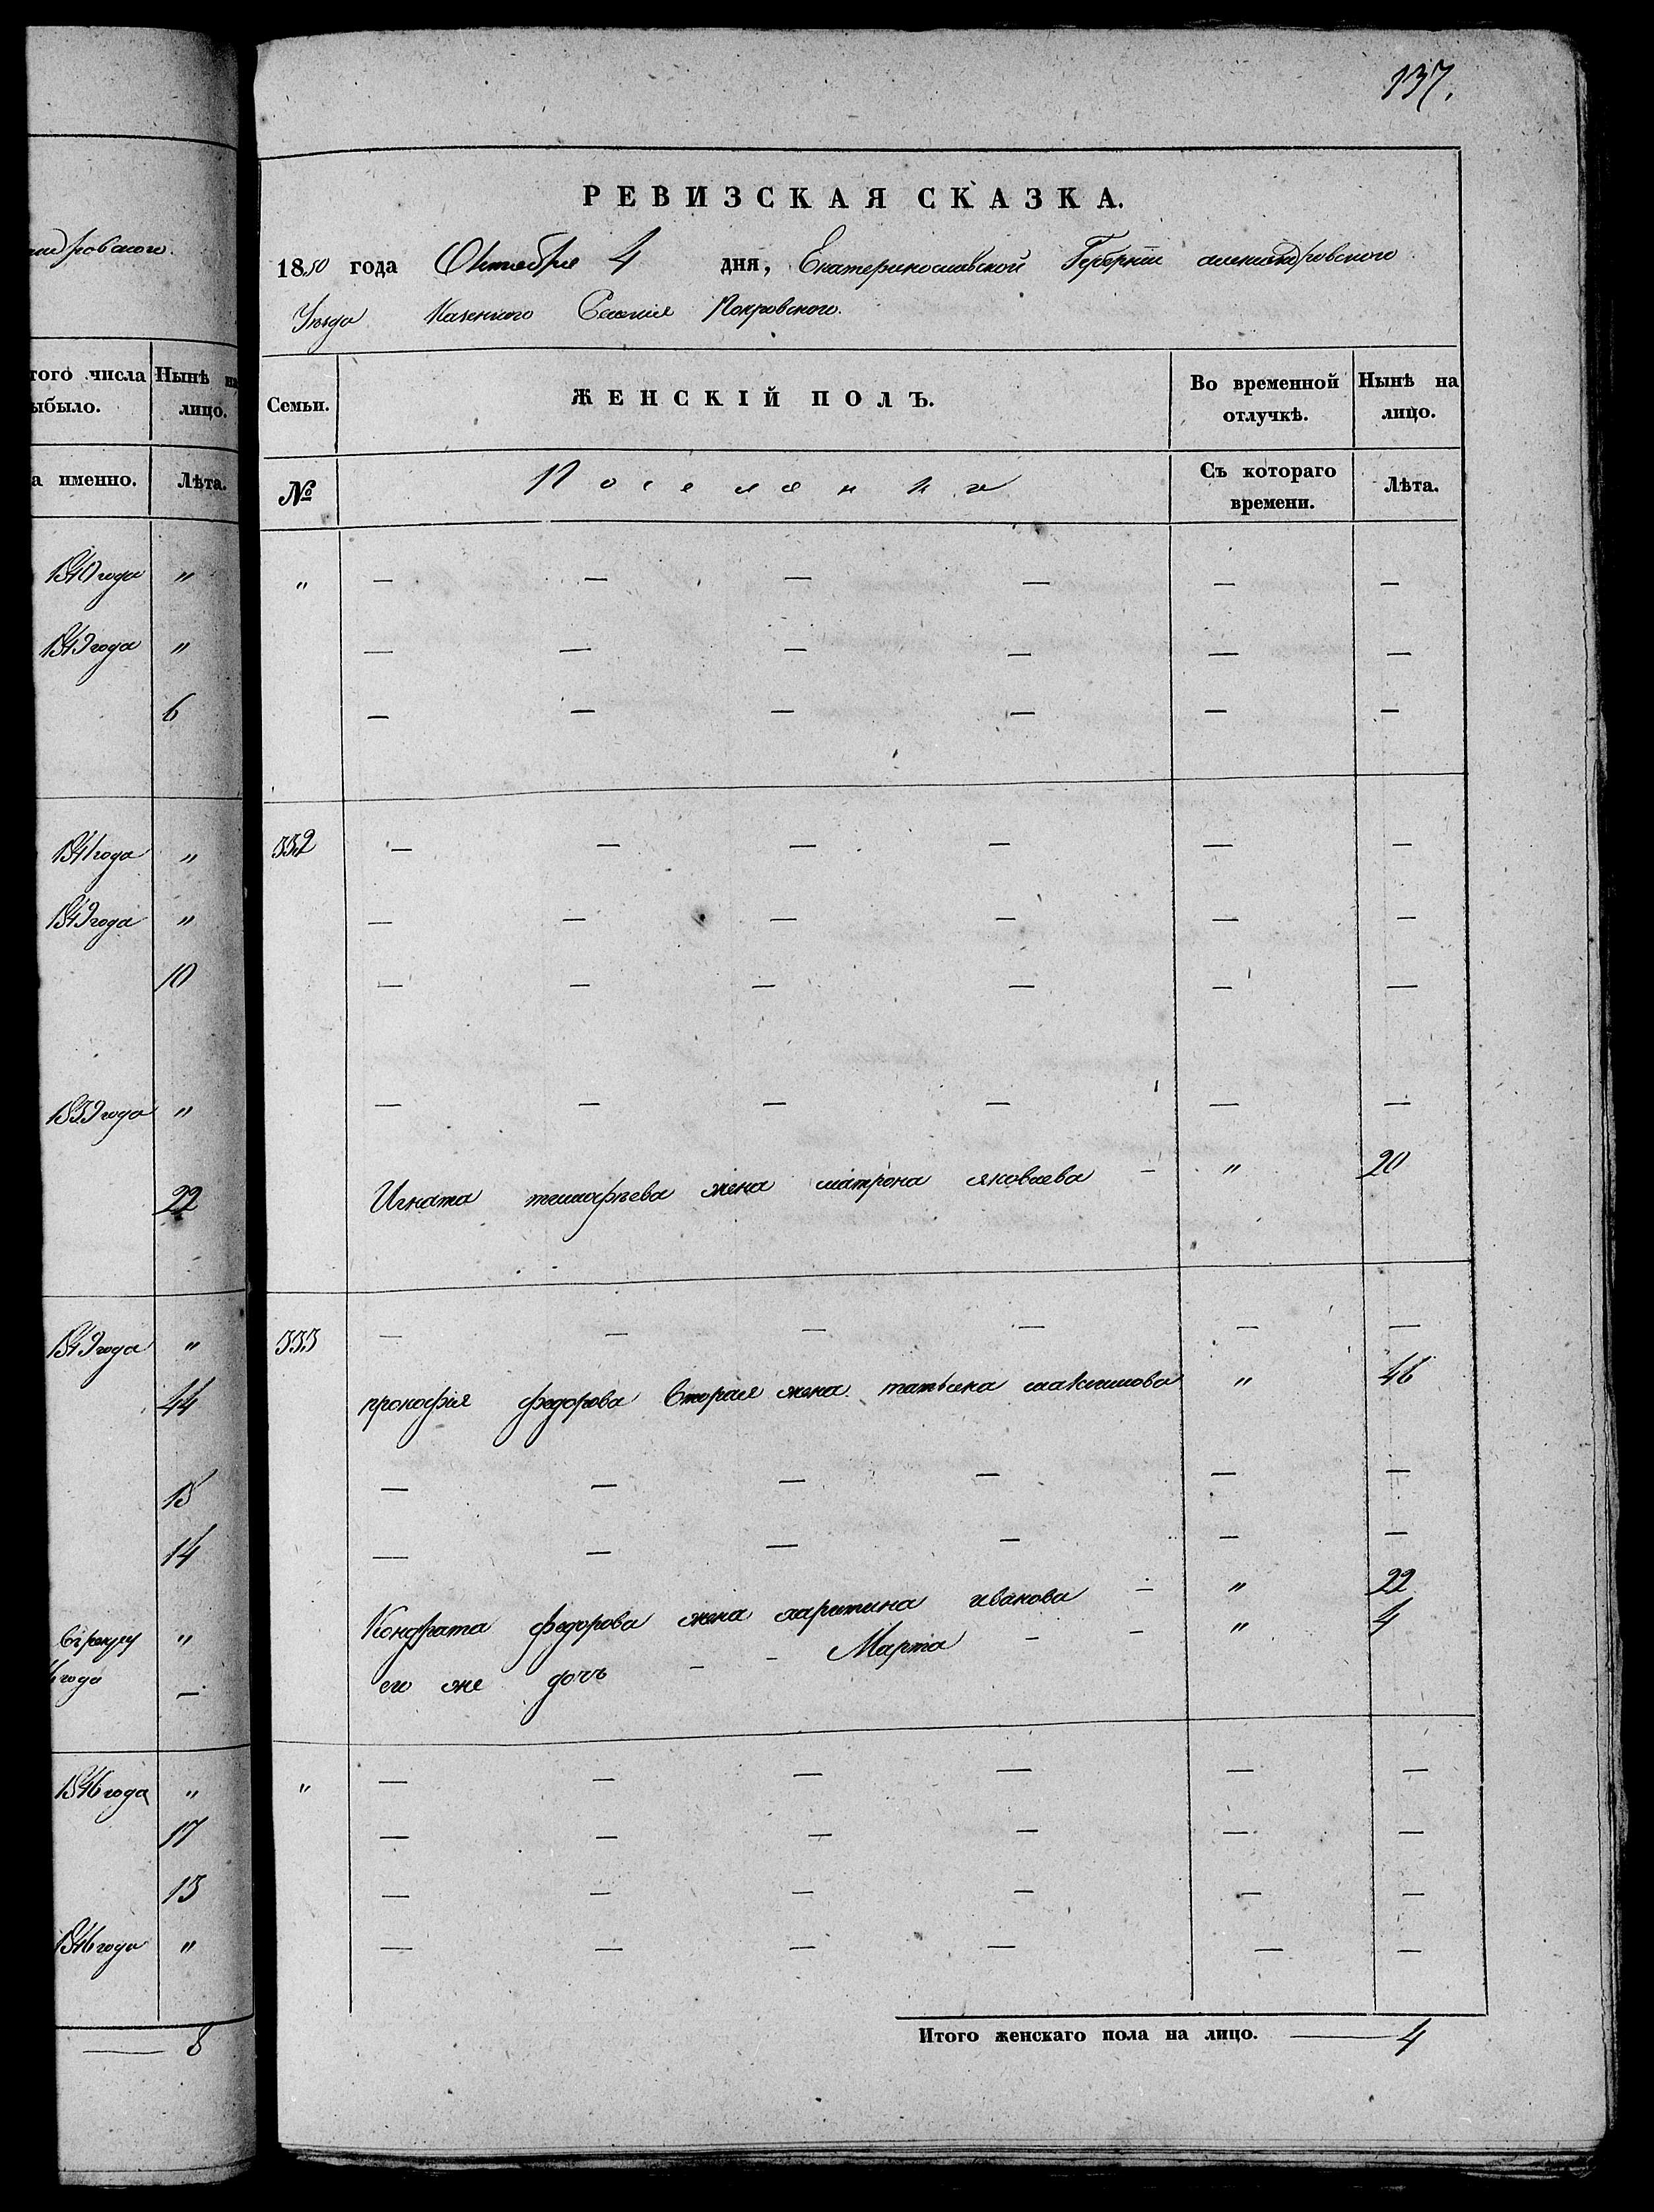 ровскаго.
того числа Нынѣ на
ыбыло. лицо.
а именно. Лѣта.
1840 года "
1849 года "
6
1841 года "
1849 года "
10
1839 года "
22
1849 года "
44
15
14
в рекруты "
года —
1846 года "
17
13
1846 года "
— 8
137.
РЕВИЗСКАЯ СКАЗКА.
1850 года Октября 4 дня, Екатеринославской Губерніи александровского
Уезда Казенного Селенія Покровского.
Семьи. ЖЕНСКІЙ ПОЛЪ. Во временной отлучкѣ. Нынѣ на лицо.
№ Поселянки Съ котораго времени. Лѣта.
" — — — — — —
— — — — — —
— — — — — —
332 — — — — — —
— — — — — —
— — — — — —
— — — — — —
Игната тимофѣева жена матрона яковлева — " 20
333 — — — — — —
прокофія федорова вторая жена татьяна максимова " 46
— — — — — —
— — — — — —
Кондрата федорова жена харитина иванова — " 22
его же дочь — — Марта — — " 4
" — — — — — —
— — — — — —
— — — — — —
— — — — — —
Итого женскаго пола на лицо. — 4